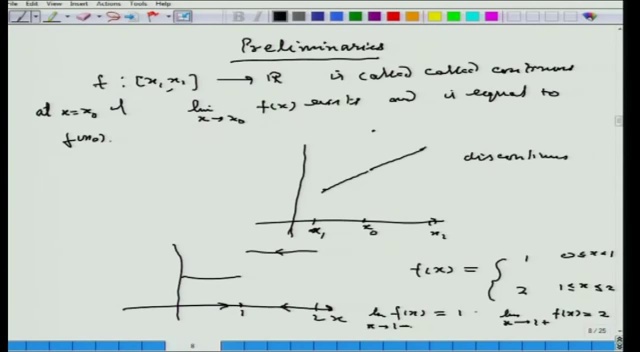 File Edit View Insert Actions Tools Help
Preliminaries
f : [x₁, x₁] → ℝ is called called continuous
at x=x₀ if lim x→x₀ f(x) exists and is equal to
f(x₀).
discontinuous
x₁ x₀ x₂
f(x) = { 1 0≤x<1
2 1≤x≤2
1 2 x lim x→1- f(x) = 1 . lim x→1+ f(x) = 2
8 / 25
8